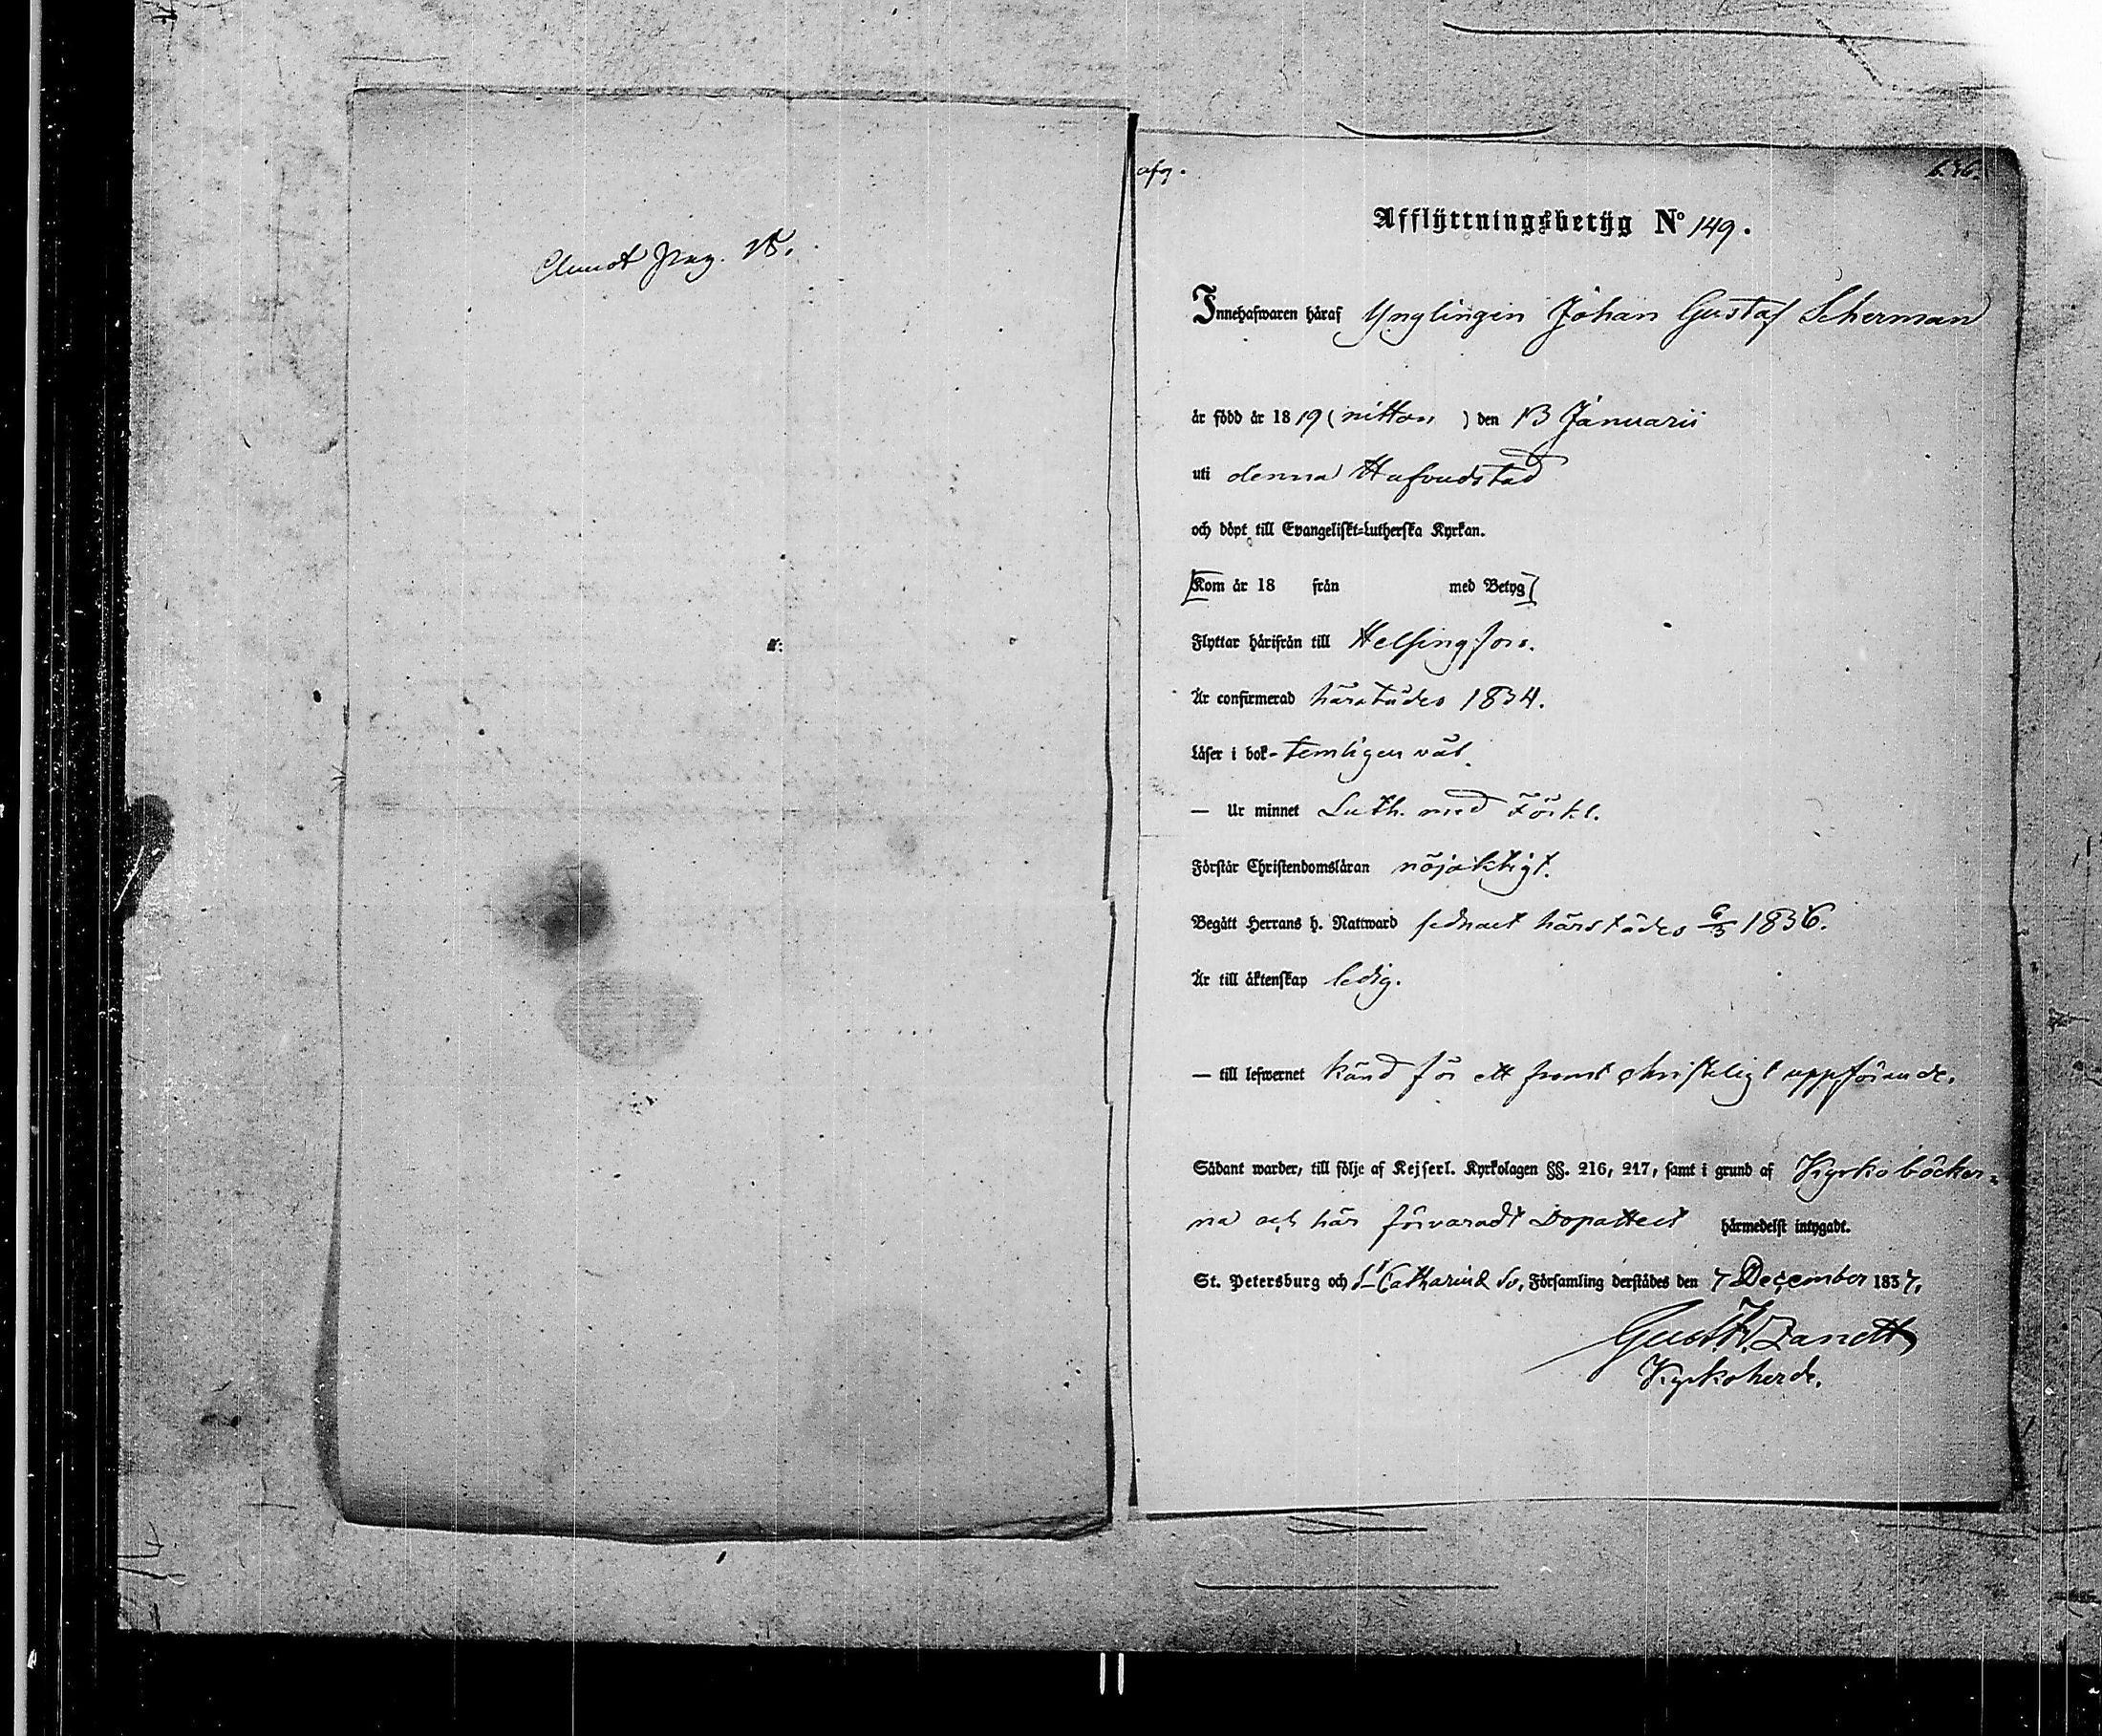 afg.
Afflyttningsbetyg No 149.
Innehafwaren häraf Ynglingen Johan Gustaf Scherman
är född år 1819 (nitton) den 13 Januarii
uti denna Hufvudstad
och döpt till Evangeliskt-Lutherska Kyrkan.
[Kom år 18 från med Betyg]
Flyttar härifrån till Helsingfors.
Är confirmerad härstädes 1834.
Läser i bok - temligen väl.
— Ur minnet Luth. med Förkl.
Förstår Christendomsläran nöjaktigt.
Begått Herrans h. Nattward sednast härstädes 6/3 1836.
Är till äktenskap ledig.
— till lefwernet känd för ett fromt christeligt uppförande.
Sådant warder, till följe af Kejserl. Kyrkolagen §§. 216, 217, samt i grund af Kyrkoböcker=
na och här förvaradt Dopattest härmedelst intygadt.
St. Petersburg och St Catharinæ Sv. Församling derstädes den 7 December 1837.
Gust. Fr. Zandt
Kyrkoherde.